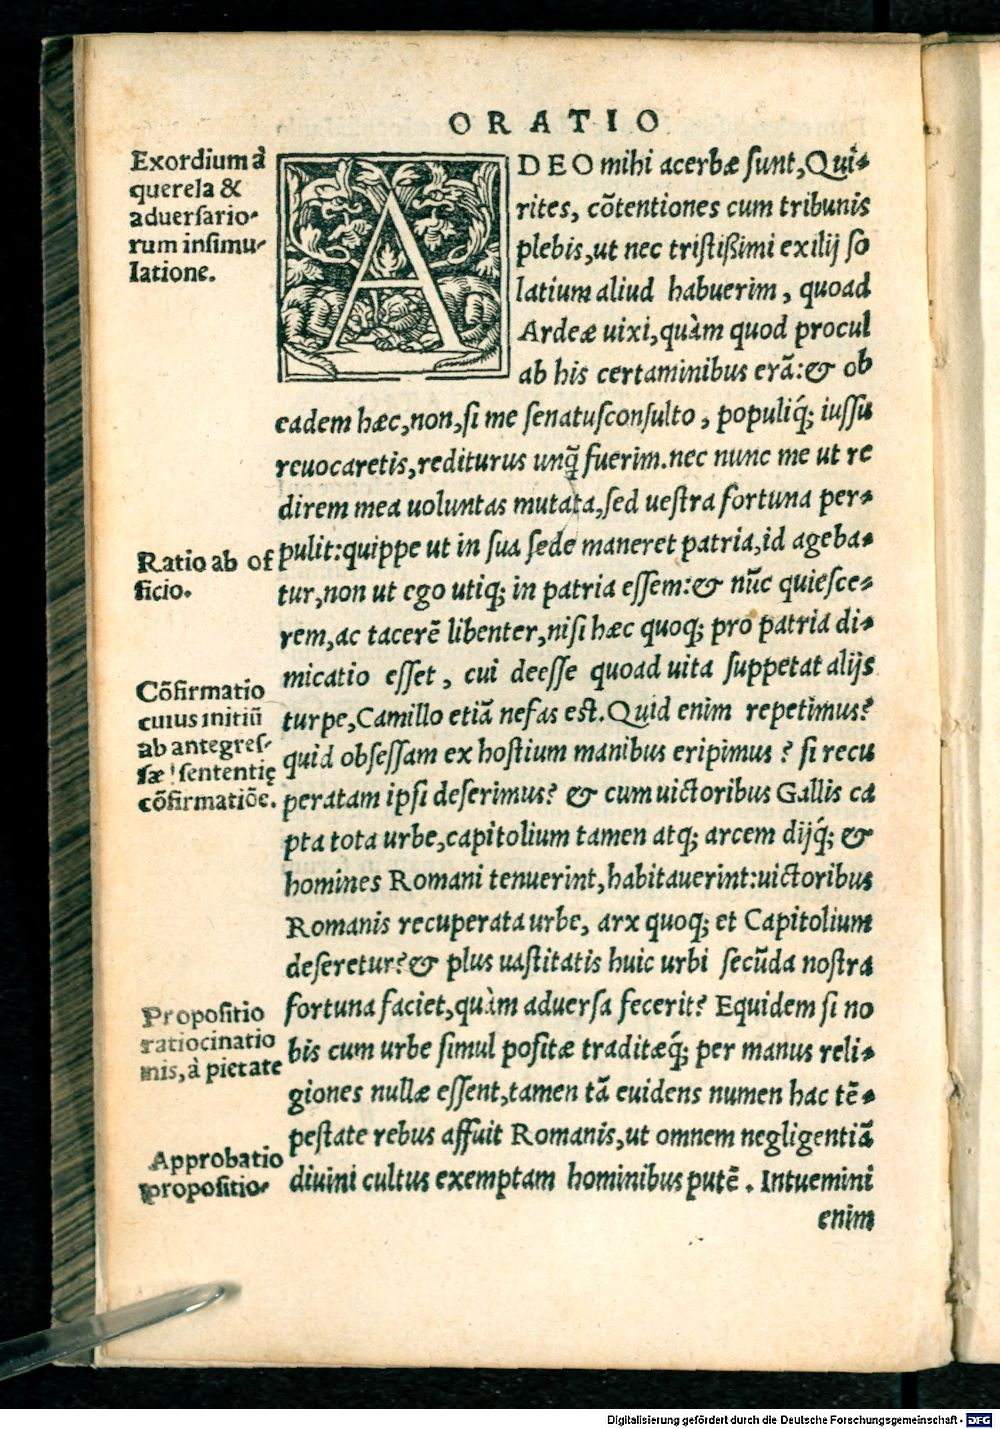 ORATIO
Exordium à
querela &
aduersario-
rum insimu-
latione.
ADEO mihi acerbæ sunt, Qui-
rites, cõtentiones cum tribunis
plebis, ut nec tristißimi exilij so
latium aliud habuerim, quoad
Ardeæ uixi, quàm quod procul
ab his certaminibus erã: & ob
eadem hæc, non, si me senatusconsulto, populiq́; iussu
reuocaretis, rediturus unq̃ fuerim. nec nunc me ut re
direm mea uoluntas mutata, sed uestra fortuna per-
pulit: quippe ut in sua sede maneret patria, id ageba-
tur, non ut ego utiq; in patria essem: & nũc quiesce-
rem, ac tacerẽ libenter, nisi hæc quoq; pro patria di-
micatio esset, cui deesse quoad uita suppetat alijs
turpe, Camillo etiã nefas est. Quid enim repetimus?
quid obsessam ex hostium manibus eripimus? si recu
peratam ipsi deserimus? & cum uictoribus Gallis ca
pta tota urbe, capitolium tamen atq; arcem dijq́; &
homines Romani tenuerint, habitauerint: uictoribus
Romanis recuperata urbe, arx quoq; et Capitolium
deseretur? & plus uastitatis huic urbi secũda nostra
fortuna faciet, quàm aduersa fecerit? Equidem si no
bis cum urbe simul positæ traditæq́; per manus reli-
giones nullæ essent, tamen tã euidens numen hac tẽ-
pestate rebus affuit Romanis, ut omnem negligentiã
diuini cultus exemptam hominibus putẽ. Intuemini
enim
Ratio ab of
ficio.
Cõfirmatio
cuius initiũ
ab antegres-
sæ sententię
cõfirmatiõe.
Propositio
ratiocinatio
nis, à pietate
Approbatio
propositio-
Digitalisierung gefördert durch die Deutsche Forschungsgemeinschaft - DFG